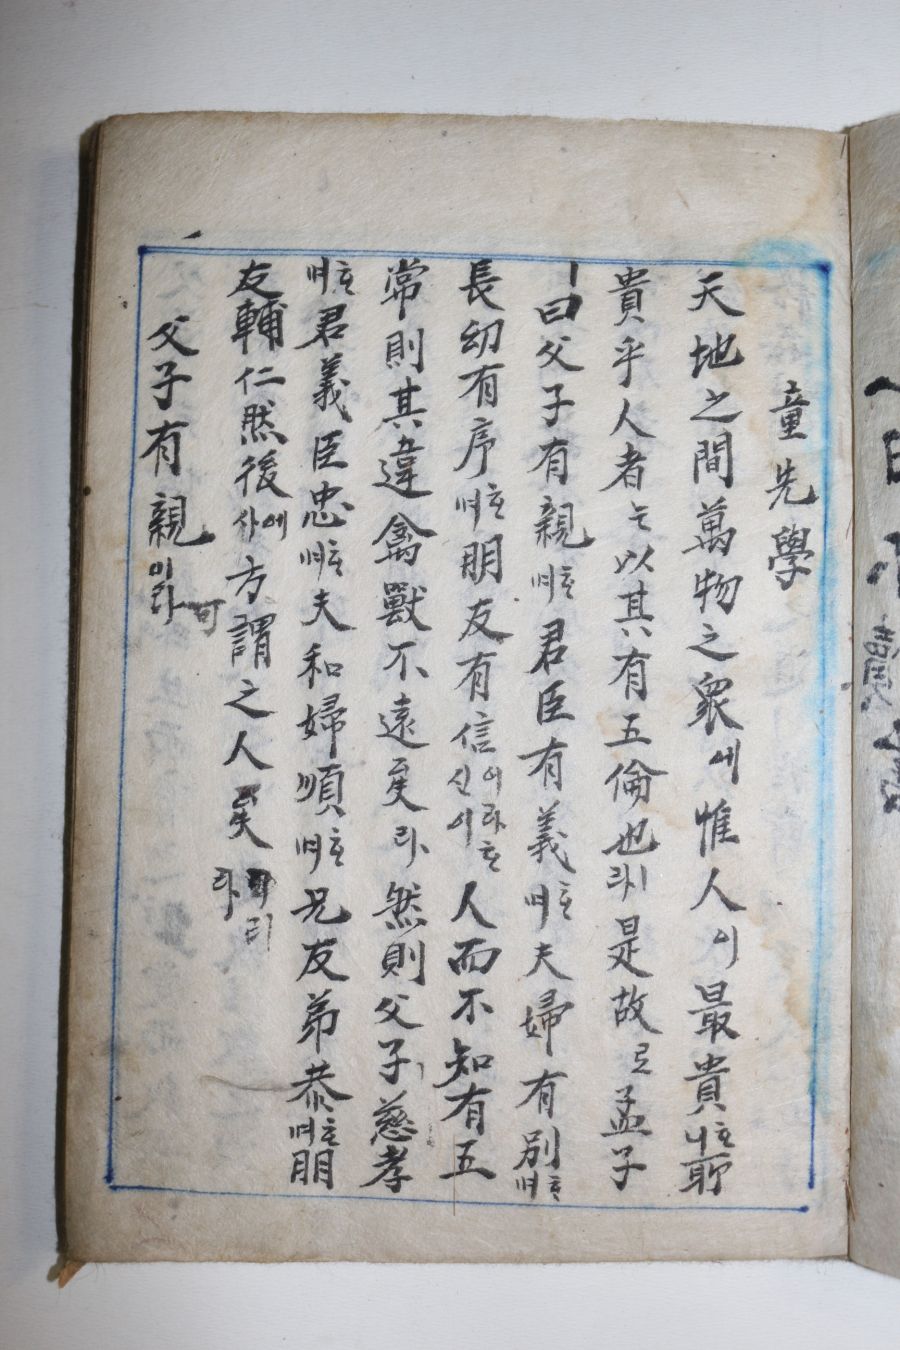 童先學
天地之間萬物之衆에惟人이最貴
貴乎人者는以其有五倫也라是故로孟子
曰父子有親며君臣有義며夫婦有別며
長幼有序며朋友有信人而不知有五
常則其違禽獸不遠矣라然則父子慈孝
며君義臣忠며夫和婦順며兄友弟恭며朋
友輔仁然後사에方謂之人矣라
父子有親이라